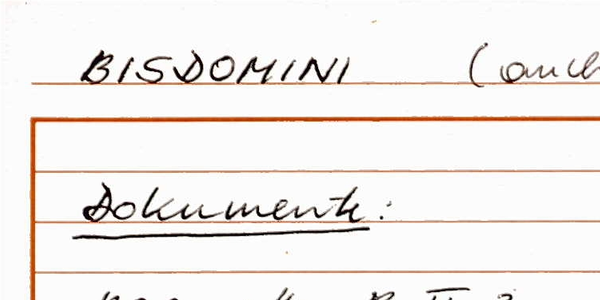 BISDOMINI (auch
Dokumente: